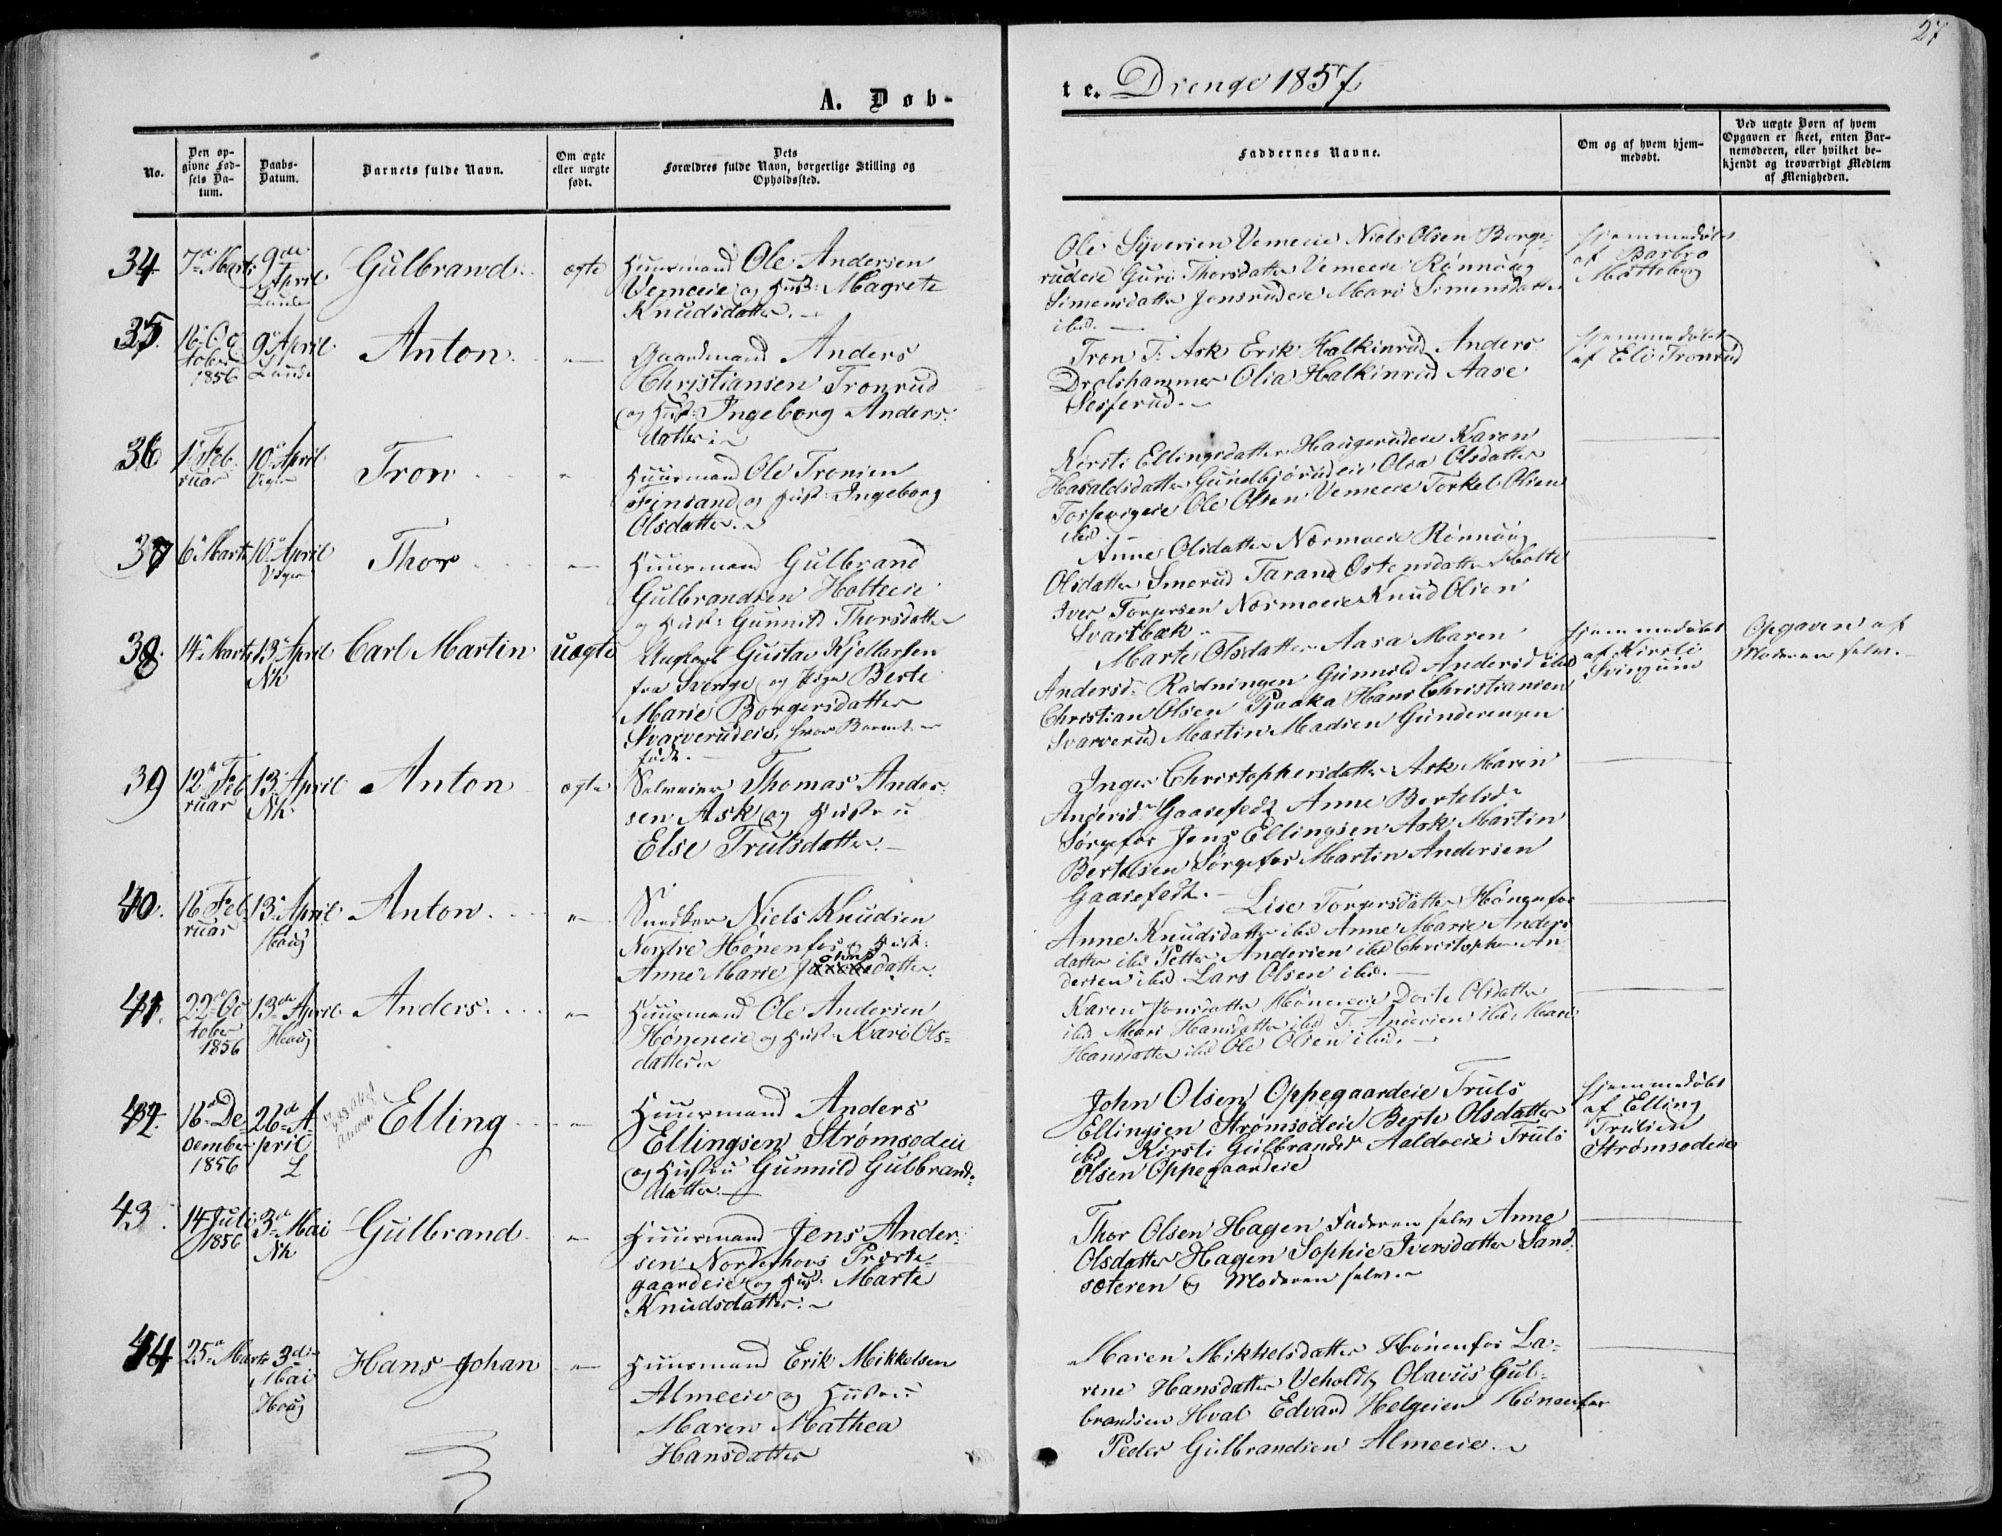 27
A. Døb-
te. Drenge 1857
No.
Den op-
givne Fød-
sels Da-
tum.
Daabs-
Datum.
Barnets fulde Navn.
Om ægte
eller uægte
født.
Dets
Forældres fulde Navn, borgerlige Stilling og
Opholdssted.
Faddernes Navne.
Om og af hvem hjem-
medøbt.
Ved uægte Børn af hvem
Opgaven er skeet, enten Bar-
nemoderen, eller hvilket be-
kjendt og troværdigt Medlem
af Menigheden.
34
7de Marts
9de
April
Lunde
Gulbrand
ægte
Huusmand Ole Andersen
Vemeeie og Hust: Magrete
Knudsdatter.
Ole Syversen Vemeeie Niels Olsen Borge-
rudeie Guri Thorsdatter Vemeeie Rønnaug
Simensdatter Jonsrudeie Mari Simensdatter
ibid.
Hjemmedøbt
af Barbro
Motteberg
35.
16 Oc
tober
1856
9 April
Lunde
Anton
Gaardmand Anders
Christiansen Tronrud
og Hust: Ingeborg Anders-
datter
Tron T. Ask Erik Halkinrud Anders
Drolshammer Olia Halkinrud Aase
Sesserud.
Hjemmedøbt
af Eli Tronrud
36
1 Feb
ruar
10 April
Viger
Tron
Huusmand Ole Tronsen
Finsand og Hust: Ingeborg
Olsdatter.
Kirsti Ellingsdatter Haugerudeie Karen
Haraldsdatter Gunnbjørrudeie Olea Olsdatter
Torsevigeie Ole Olsen Vemeeie Torkel Olsen
ibid
37
6 Marts
10 April
Viger
Thor
Huusmand Gulbrand
Gulbrandsen Holteeie
og Hust: Gunnild Thorsdatter
Anne Olsdatter Normoeie Rønnaug
Olsdatter Smerud Tarand Østensdatter Holte
Iver Torgersen Normoeie Knud Olsen
Svartbæk
38.
14 Marts
13 April
Nh
Carl Martin
uægte
Ungkarl Gustav Kjellarsen
fra Sverige og Pige Berte
Marie Borgersdatter
Svarverudeie, hvor Barnet
født.
Marte Olsdatter Aasa Maren
Andersd. Rødningen Gunnild Andersd ibid
Christian Olsen Pjaaka Hans Christiansen
Svarverud Martin Madsen Gunderengen
Hjemmedøbt
af Kirsti
Svingum
Opgaven af
Moderen selv.
39
12 Feb
ruar
13 April
Nh
Anton
ægte
Selveier Thomas Ander-
sen Ask og Hustru
Else Trulsdatter.
Inger Christophersdatter Ask Maren
Andersd. Gaasefedt Anne Bertelsd.
Sørgefos Jens Ellingsen Ask Martin
Bertelsen Sørgefos Martin Andersen
Gaasefedt.
40.
16 Feb
ruar
13 April
Haug
Anton
Snedker Niels Knudsen
Nordre Hønenfos og Hust:
Anne Marie datter
Lise Torgersdatter Hønenfos
Anne Knudsdatter ibid Anne Marie Anders
datter ibid Petter Andersen ibid Christopher An
dersen ibid Lars Olsen ibid.
41.
22 Oc
tober
1856
13de April
Haug
Anders
Huusmand Ole Andersen
Høneneie og Hust: Kari Ols-
datter
Karen Jonsdatter Høneneie Dorte Olsdatter
ibid Mari Hansdatter ibid T. Andersen ibid Mari
Hansdatter ibid Ole Olsen ibid.
42.
16 De
cember
1856
26de A
pril
L
Elling
Huusmand Anders
Ellingsen Strømsodeie
og Hustru Gunnild Gulbrands-
datter
John Olsen Oppegaardeie Truls
Ellingsen Strømsodeie Berte Olsdatter
ibid Kirsti Gulbrandsd Aaldreie Truls
Olsen Oppegaardeie
Hjemmedøbt
af Elling
Trulsen
Strømsodeie
43
14 Juli
1856
3de Mai
Nh
Gulbrand
Huusmand Jens Ander-
sen Norderhovs Præste-
gaardeie og Hust: Marte
Knudsdatter.
Thor Olsen Hagen Faderen selv Anne
Olsdatter Hagen Sophie Iversdatter Sand-
sæteren og Moderen selv.
44
25 Marts
3de
Mai
Haug
Hans Johan
Huusmand Erik Mikkelsen
Almeeie og Hustru
Maren Mathea
Hansdatter
Maren Mikkelsdatter Hønenfos La-
rine Hansdatter Veholdt Olavus Gul-
brandsen Hval Edvard Helgesen Hønenfos
Peder Gulbrandsen Almeeie.